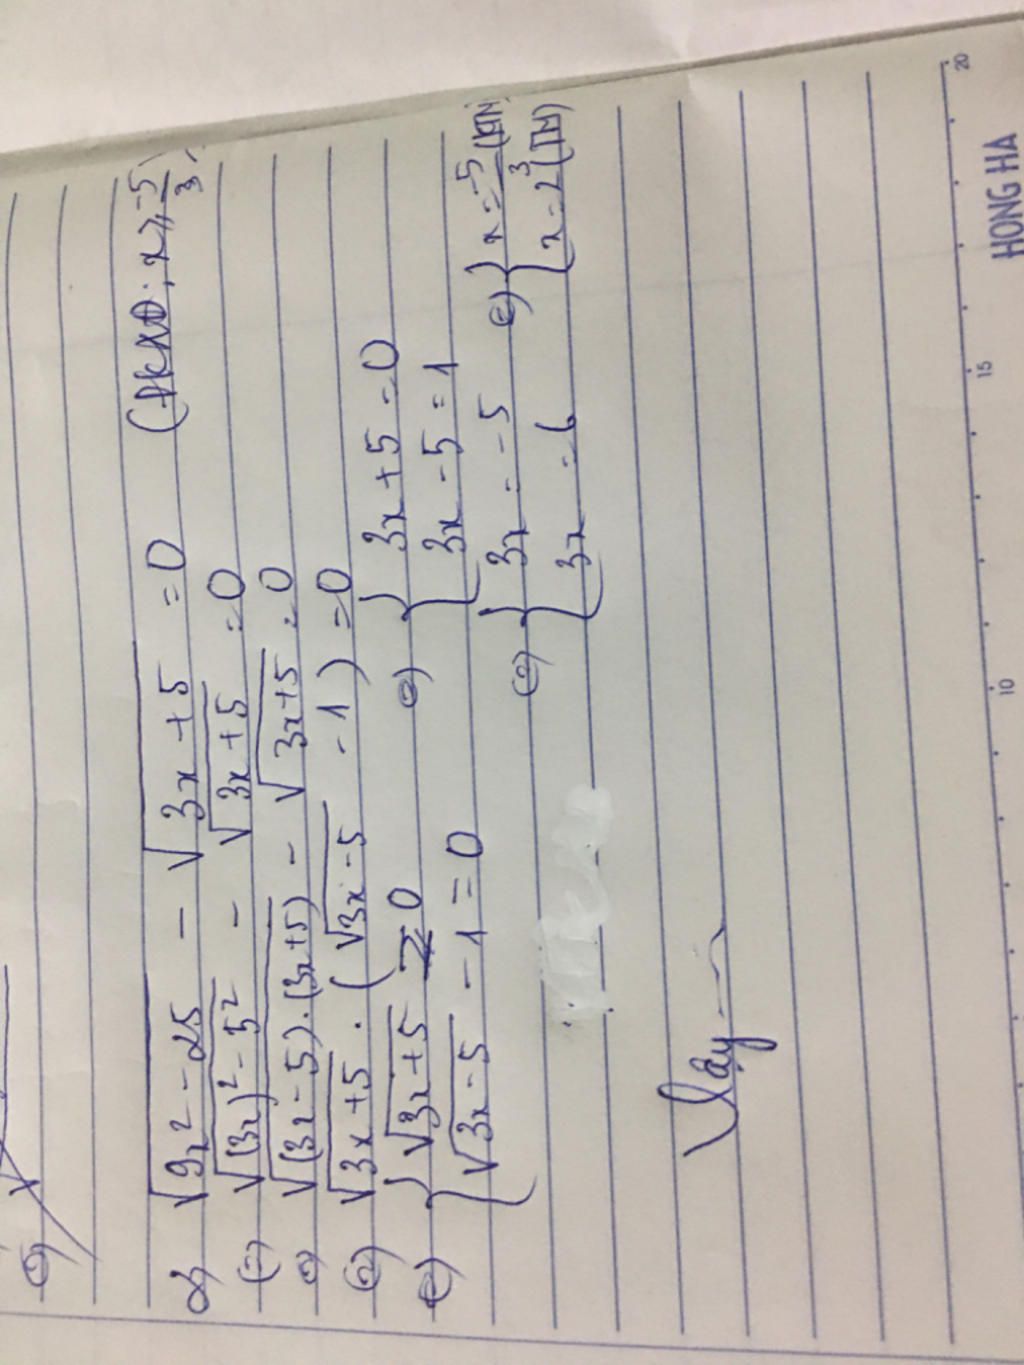 d) √(9x² - 25) - √(3x + 5) = 0 (ĐKXĐ: x ≥ -5/3)
(=) √((3x)² - 5²) - √(3x + 5) = 0
(=) √((3x - 5).(3x + 5)) - √(3x + 5) = 0
(=) √(3x + 5) . (√(3x - 5) - 1) = 0
(=) { √(3x + 5) = 0 (=) { 3x + 5 = 0
√(3x - 5) - 1 = 0 3x - 5 = 1
(=) { 3x = -5 (=) { x = -5/3 (KTM)
3x = 6 x = 2 (TM)
Vậy
10 15 20
HONG HA